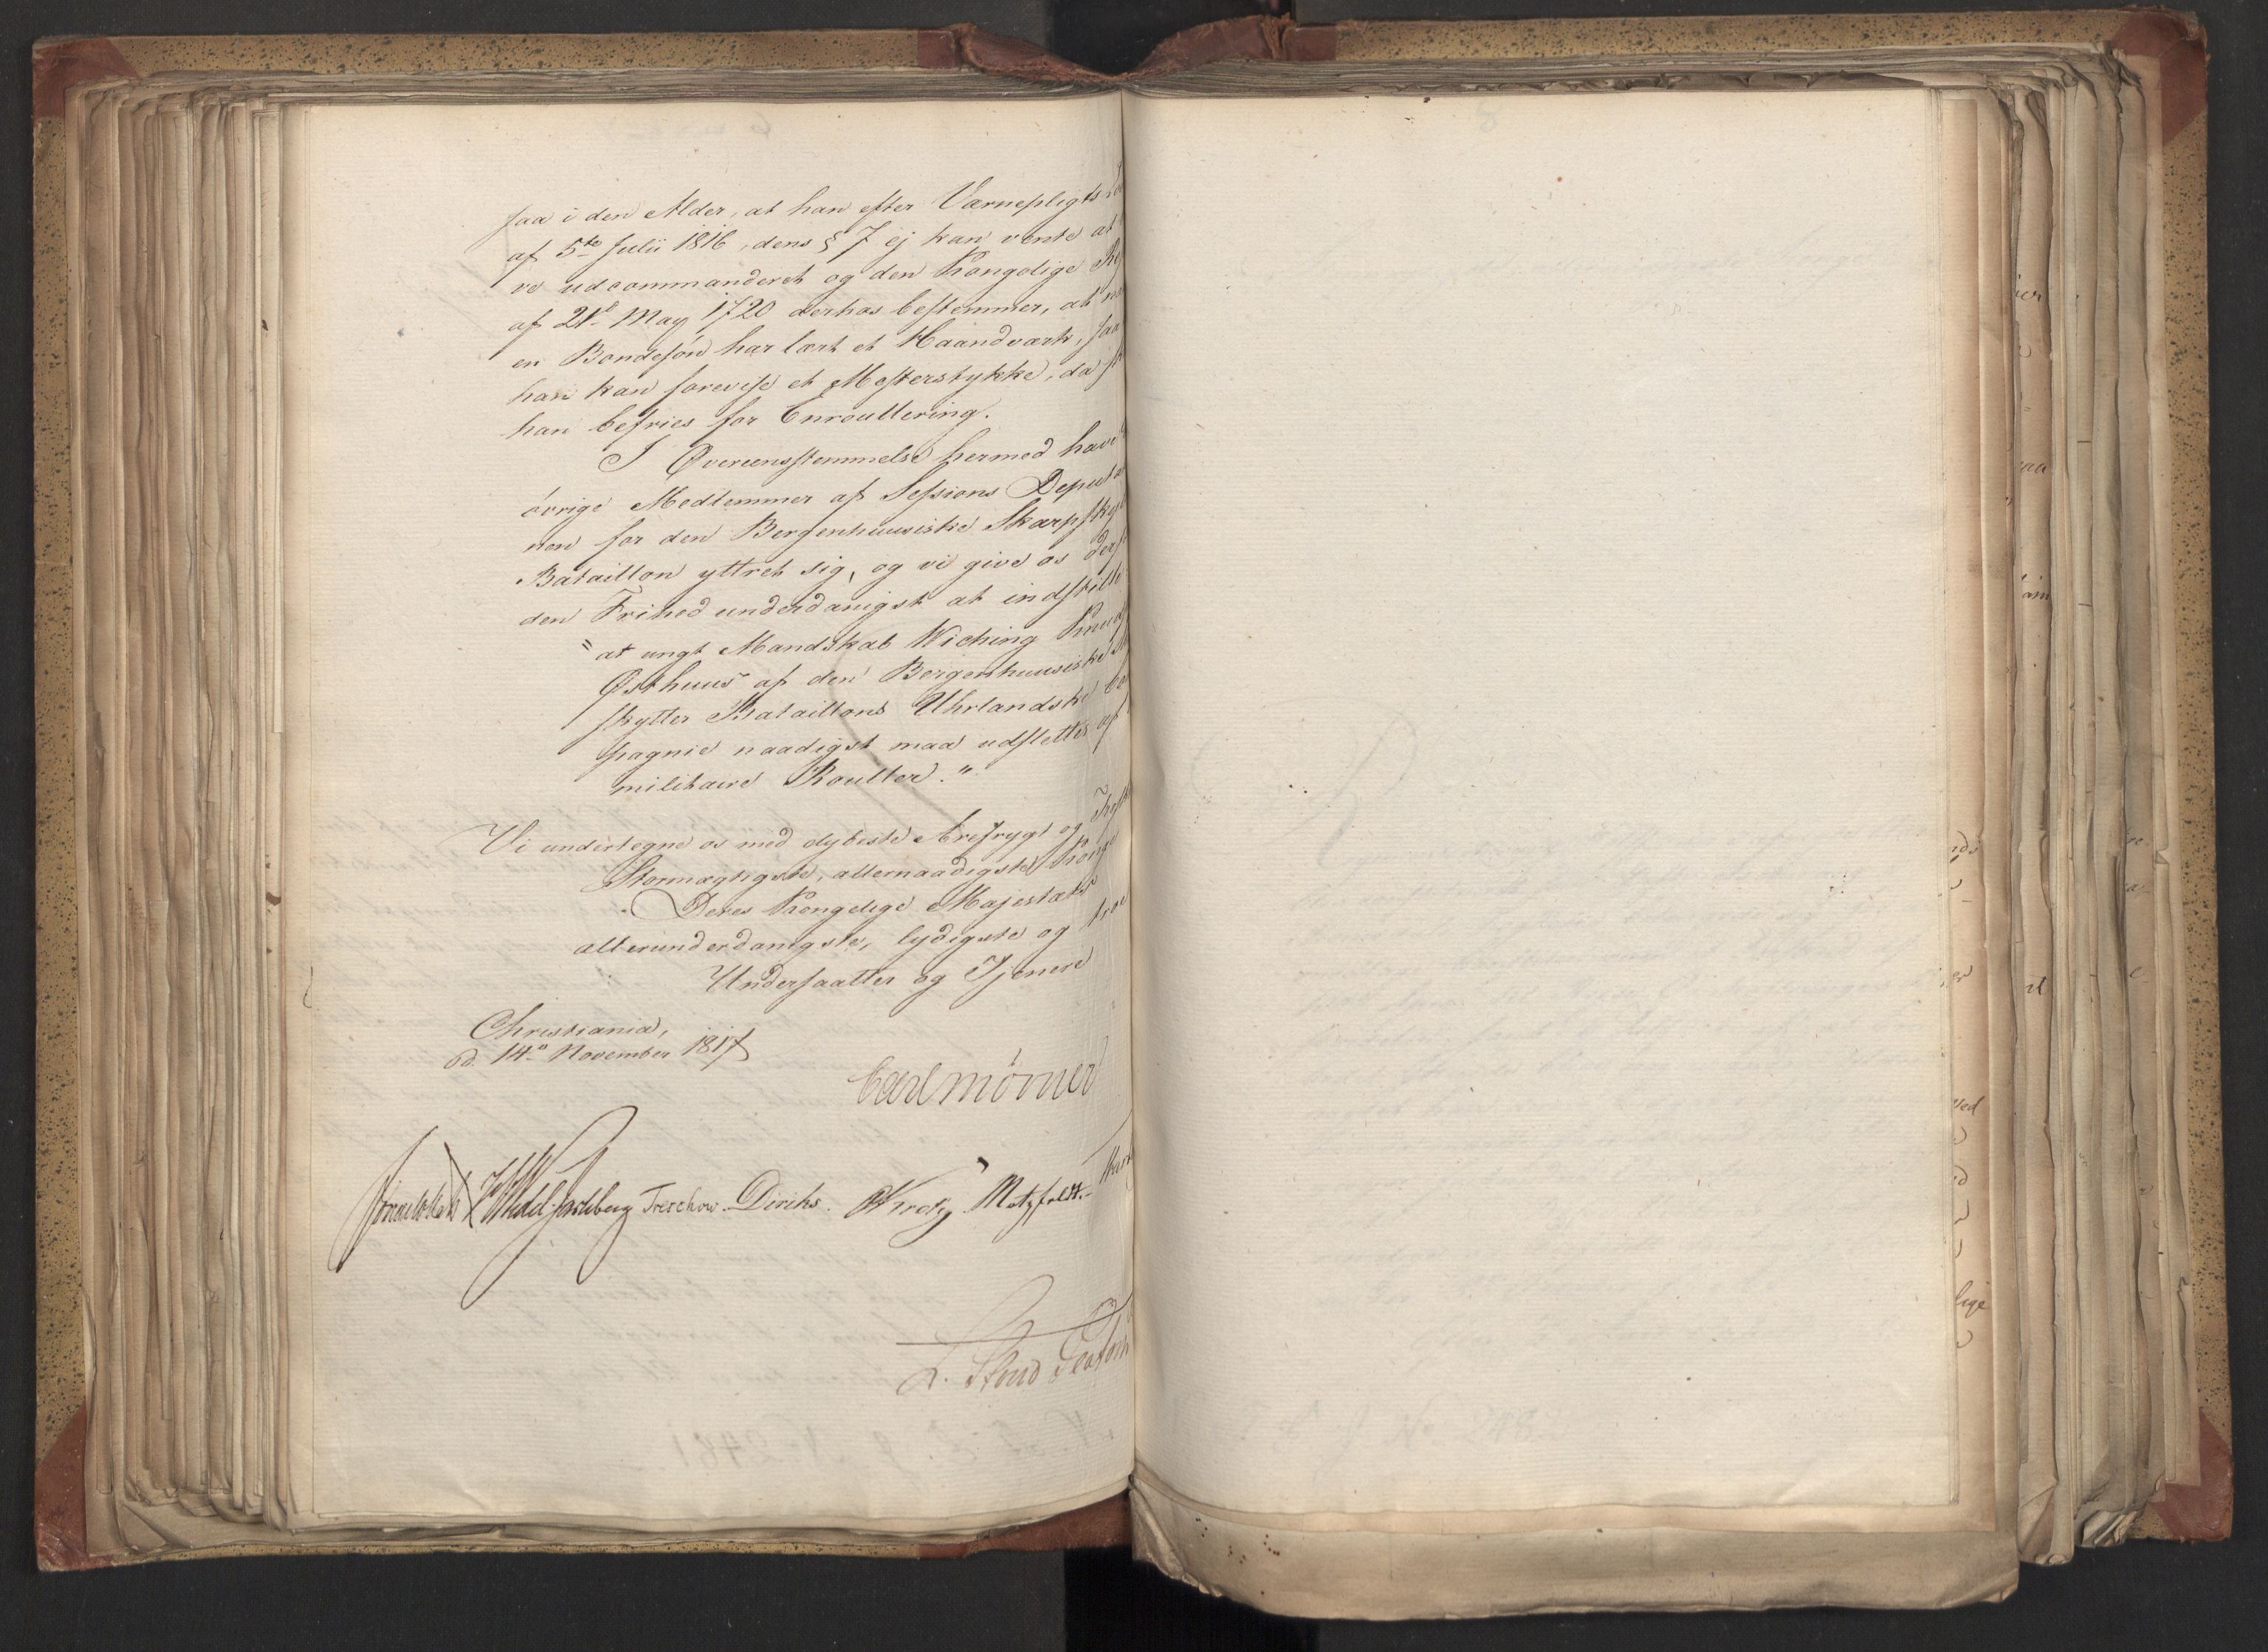 saa i den Alder, at han efter Værnepligts Lo
af 5te Julii 1816, dens § 7 ej kan vente at
ve udcommanderet og den Kongelige Re
af 21de May 1720 derhos bestemmer, at
en Bondesön har lært et Haandværk, saa
han kan forevise et Mesterstykke, da
han befries for Enroullering.
I Overeensstemmelse hermed have
övrige Medlemmer af Sessions Deputa
nen for den Bergenhuusiske Skarpsky
Bataillon yttret sig, og vi give os
den Frihed underdanigst at indstille
"at ungt Mandskab Wiching Knud
Østhuus af den Bergenhuusiske
skytter Bataillons Uhrlandske
pagnie naadigst maa udslettes af
militaire Rouller."
Vi undertegne os med dybeste Ærefrygt og
Stormægtigste, allernaadigste Konge
Deres Kongelige Majestæts
allerunderdanigste, lydigste og troe
Undersaatter og Tjenere
Christiania,
d. 14de November 1817
Carl Mörner
Wedel Jarlsberg Treschow Diriks. Krog Motzfeldt.
L. Stoud Platou
N. 2481
No 248